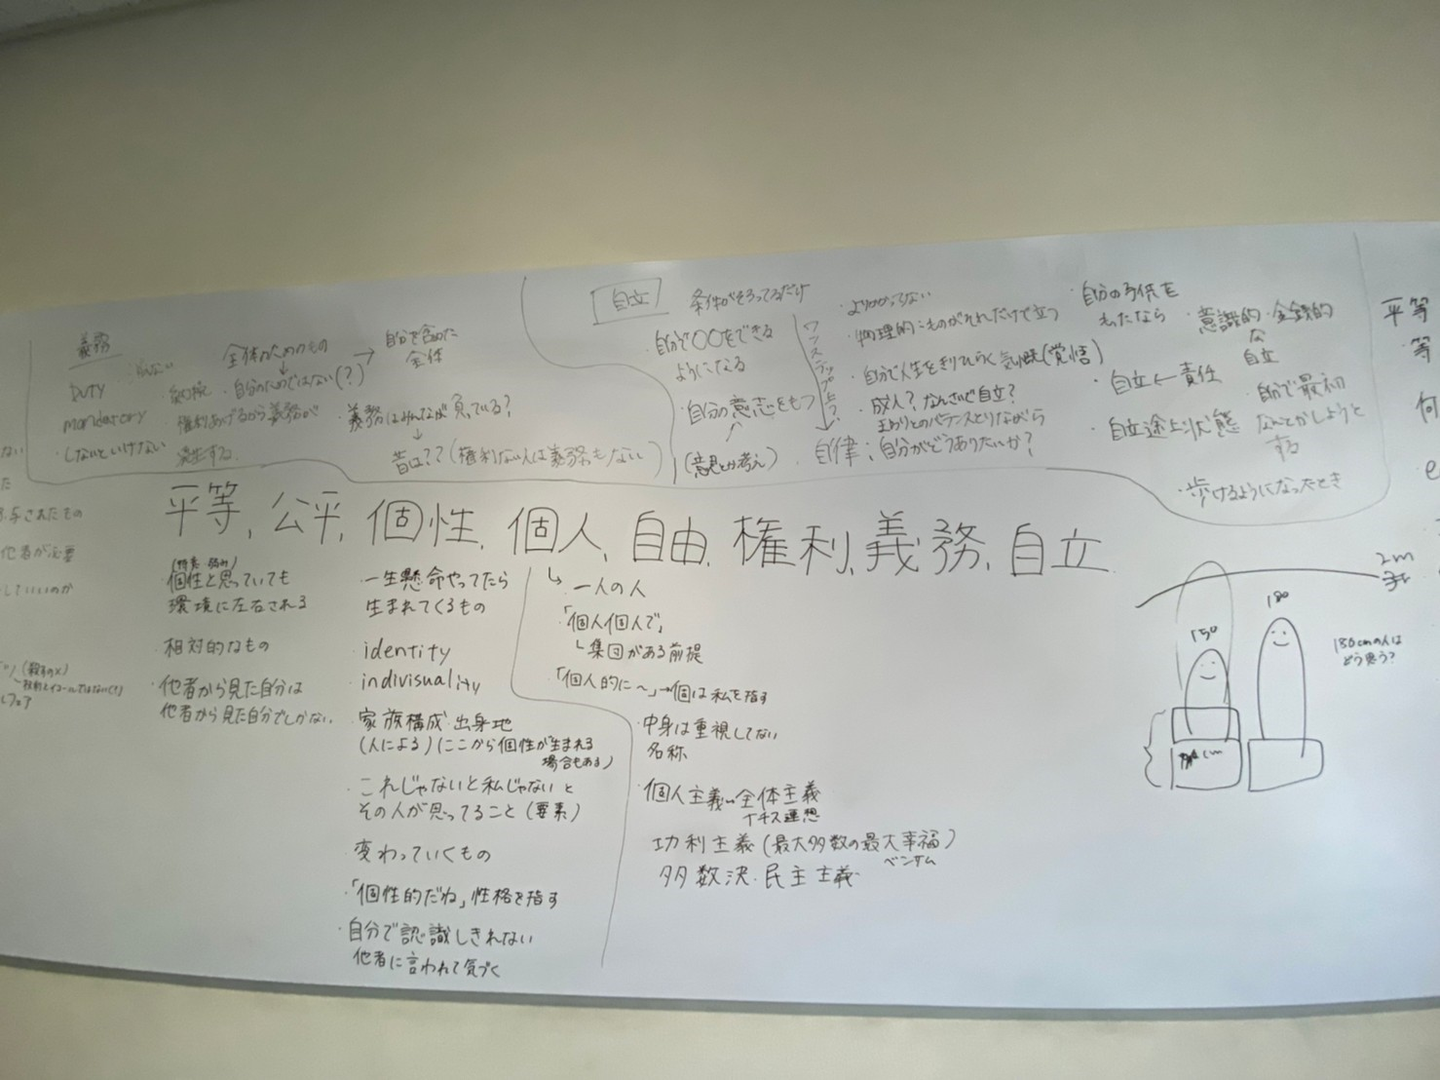 義務
DUTY
mandatory
・しないといけない
全体のためのもの
・自分のためではない(?)
自分を含めた
全体
権利あげるから義務が
発生する
・義務はみんなが負っている?
昔は??(権利ない人は義務もない)
自立
条件がそろってるだけ
・自分で〇〇をできる
ようになる
・自分の意志をもつ
(意見とか考え)
ワンステップ上?
・よりかからない
・物理的:ものがそれだけで立つ
・自分で人生をきりひらく気概(覚悟)
・成人?なんさいで自立?
まわりとのバランスとりながら
自律:自分がどうありたいか?
・自分の子供を
もったなら
・自立←責任
・自立途上状態
・意識的・金銭的
な
自立
・自分で最初
なんとかしようと
する
・歩けるようになったとき
平等
・等
何
ない
た
与されたもの
他者が必要
していいのか
平等、公平、個性、個人、自由、権利、義務、自立
個性と思っていても
環境に左右される
・相対的なもの
・他者から見た自分は
他者から見た自分でしかない
・一生懸命やってたら
生まれてくるもの
identity
indivisuality
・家族構成・出身地
(人による)(ここから個性が生まれる
場合もある)
・これじゃないと私じゃないと
その人が思ってること(要素)
変わっていくもの
・「個性的だね」性格を指す
・自分で認識しきれない
他者に言われて気づく
一人の人
「個人個人で」
集団がある前提
・「個人的に〜」→個は私を指す
・中身は重視してない
名称
・個人主義↔全体主義
ナチス連想
功利主義(最大多数の最大幸福)
ベンサム
多数決・民主主義
2m
150
180
180cmの人は
どう思う?